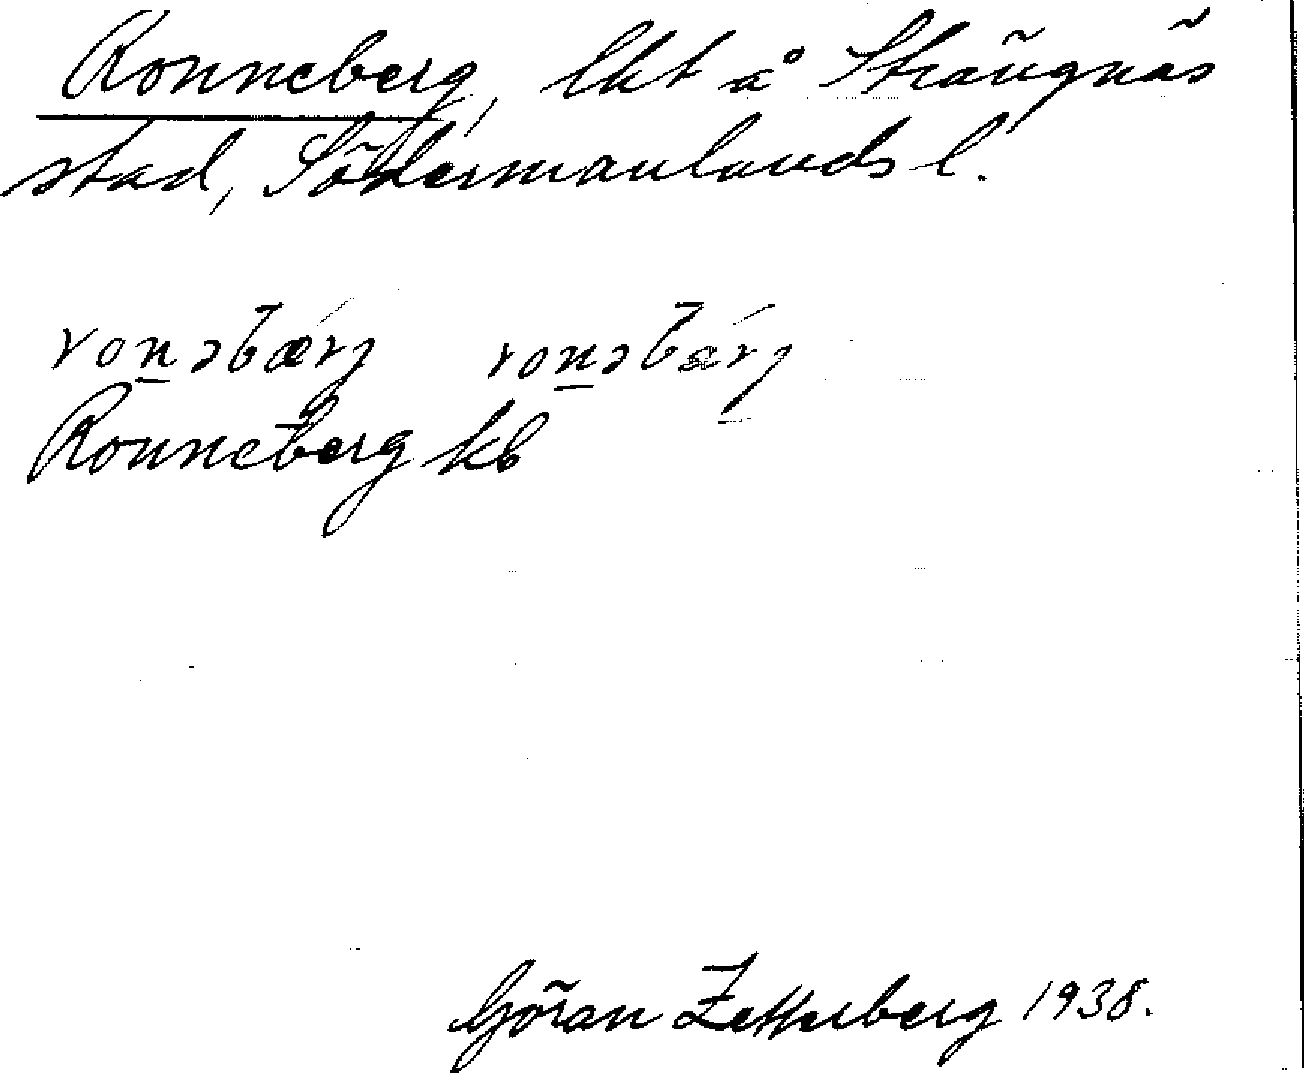 Ronneberg, lht å Strängnäs
stad, Södermanlands l.
ronəbærj ronəbærj
Ronneberg kb
Göran Zetterberg 1938.